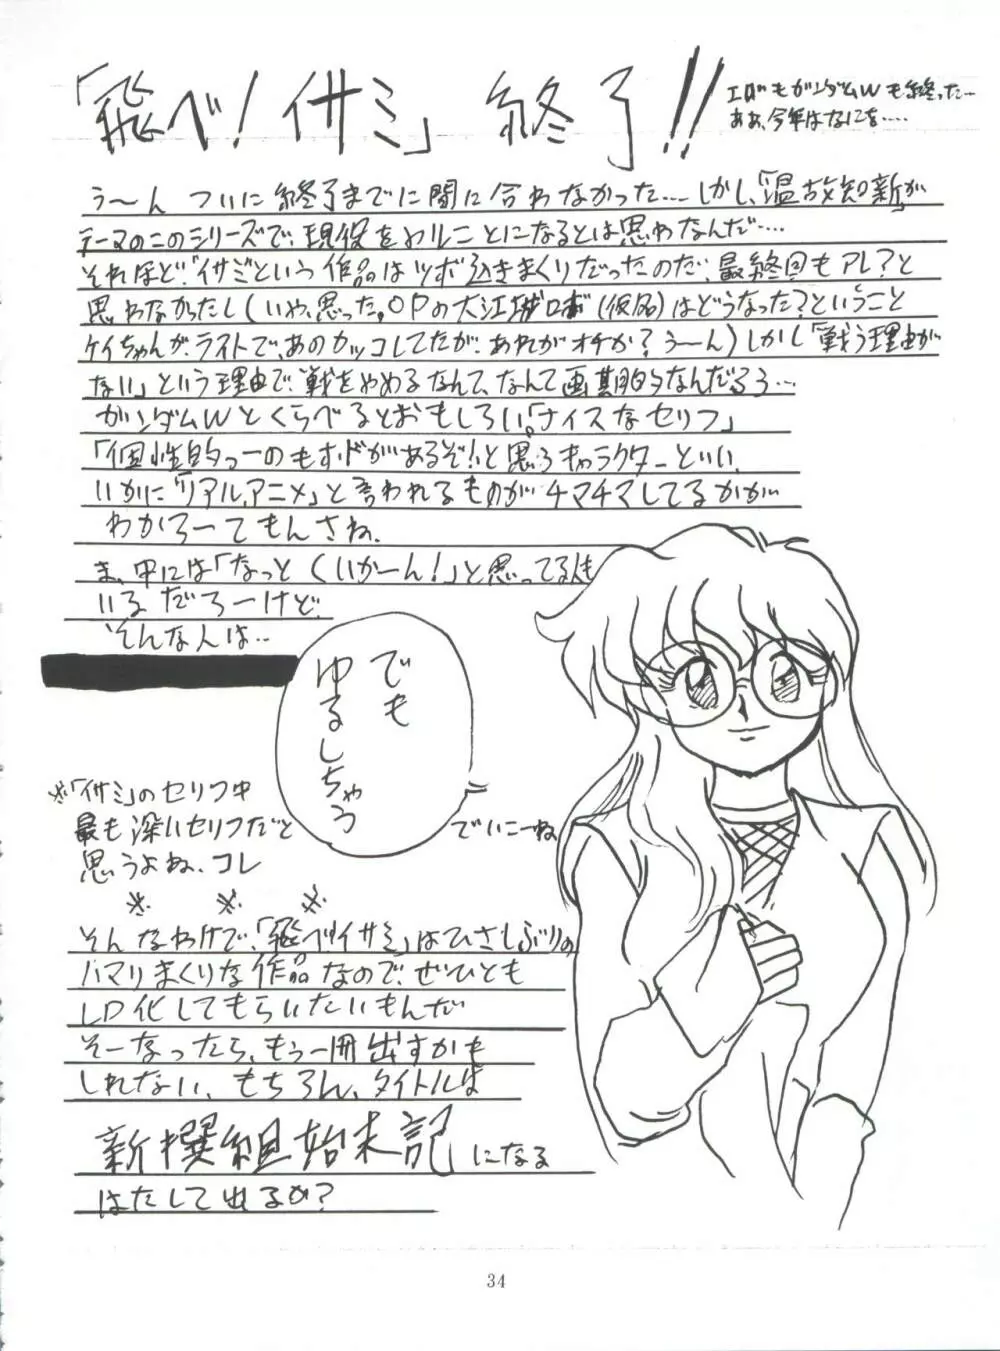 「飛べ!イサミ」終了!!
エヴァもガンダムWも終った…
ああ、今年はなにを‥‥
う〜ん ついに終了までに間に合わなかった…しかし、「温故知新」が
テーマのこのシリーズで、現役をやることになるとは思わなんだ‥‥
それほど「イサミ」という作品はツボ突きまくりだったのだ、最終回もアレ?と
思わなかったし(いや、思った。OPの大江城ロボ(仮名)はどうなった?ということ
ケイちゃんがラストで、あのカッコしてたが、あれがオチか?う〜ん)しかし「戦う理由が
ない」という理由で、戦をやめるなんて、なんて画期的なんだろう…
ガンダムWとくらべるとおもしろい。「ナイスなセリフ」
「個性的っつーのも」「ドがあるぞ!」と思うキャラクターといい、
いかに「リアルアニメ」と言われるものがチマチマしてるかが
わかろーてもんさね。
ま、中には「なっとくいかーん!」と思ってる人も
いるだろーけど、
そんな人は‥
でも
ゆるしちゃう
でいこーね
※「イサミ」のセリフ中
最も深いセリフだと
思うよね、コレ
※ ※ ※
そんなわけで、「飛べ!イサミ」はひさしぶりの
ハマりまくりな作品なので、ぜひとも
LD化してもらいたいもんだ
そーなったら、もう一冊出すかも
しれない、もちろん、タイトルは
新撰組始末記になる
はたして出るか?
34